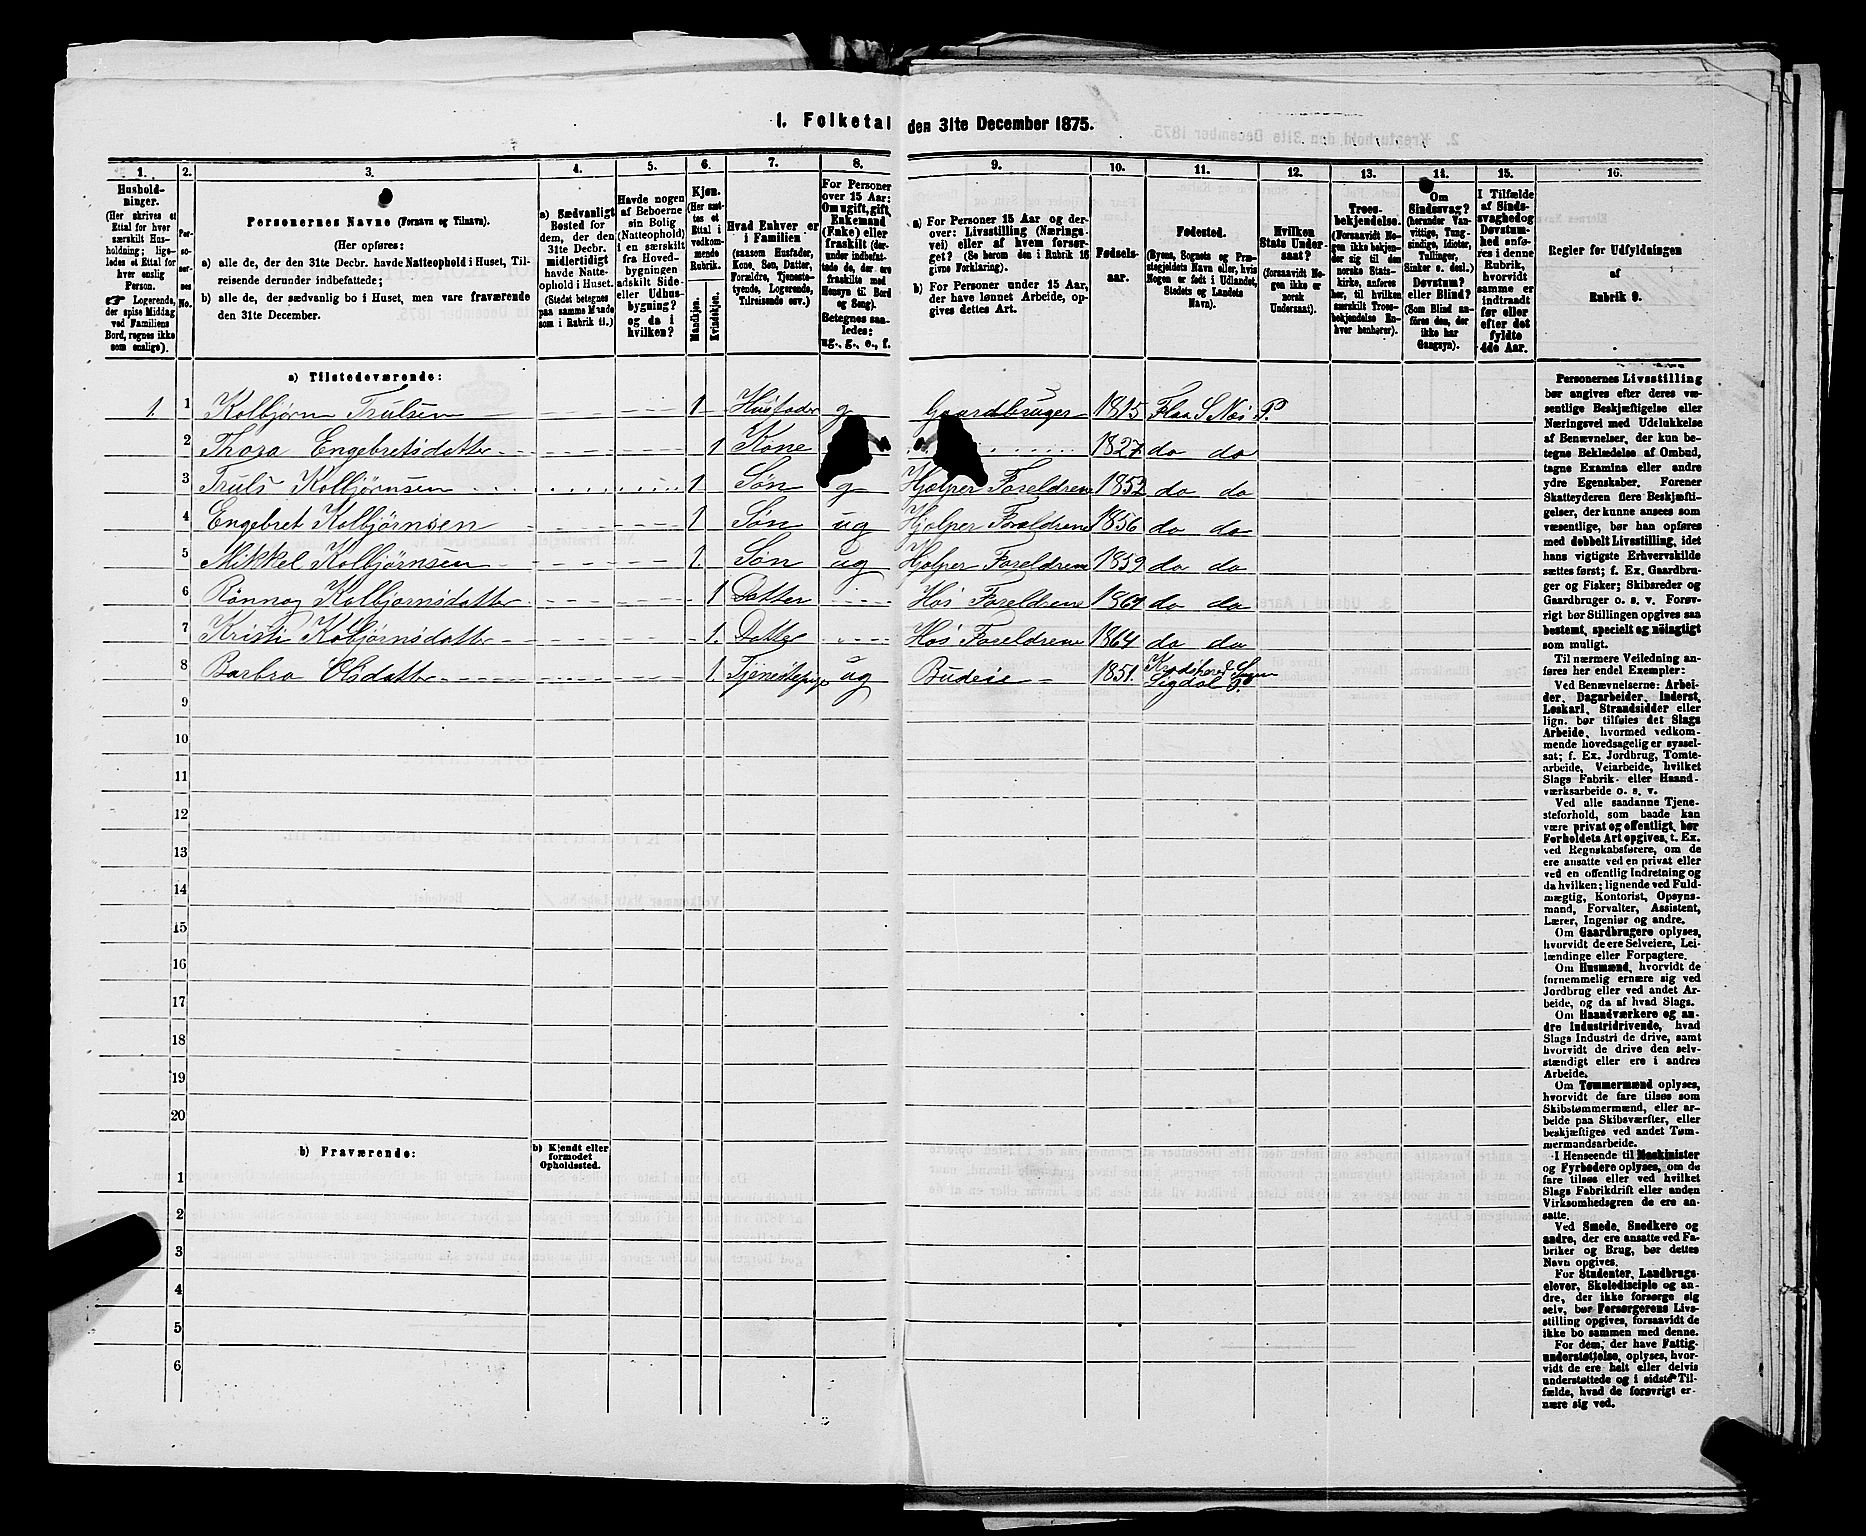 1. Folketal den 31te December 1875.
1.
Hushold-
ninger.
(Her skrives et
Ettal for hver
særskilt Hus-
holdning; lige-
ledes et Ettal for
hver enslig
Person.
Logerende,
der spise Middag
ved Familiens
Bord, regnes ikke
som enslige).
2.
Per-
so-
ner-
nes
No.
3.
Personernes Navne (Fornavn og Tilnavn).
(Her opføres:
a) alle de, der den 31te Decbr. havde Natteophold i Huset, Til-
reisende derunder indbefattede;
b) alle de, der sædvanlig bo i Huset, men vare fraværende
den 31te December.
4.
a) Sædvanligt
Bosted for
dem, der den
31te Decbr.
midlertidigt
havde Natte-
ophold i Huset.
(Stedet betegnes
paa samme Maade
som i Rubrik 11.)
5.
Havde nogen
af Beboerne
sin Bolig
(Natteophold)
i en særskilt
fra Hoved-
bygningen
adskilt Side-
eller Udhus-
bygning?
og da i
hvilken?
6.
Kjøn.
(Her sæt-
tes et
Ettal i
vedkom-
mende
Rubrik.
Mandkjøn.
Kvindekjøn.
7.
Hvad Enhver er
i Familien
(saasom Husfader,
Kone, Søn, Datter,
Forældre, Tjeneste-
tyende, Logerende,
Tilreisende osv.)
8.
For Personer
over 15 Aar:
Om ugift, gift,
Enkemand
(Enke) eller
fraskilt (der-
under indbefat-
tede de, der ere
fraskilte med
Hensyn til Bord
og Seng).
Betegnes saa-
ledes:
ug., g., e., f.
9.
a) For Personer 15 Aar og der-
over: Livsstilling (Nærings-
vei) eller af hvem forsør-
get? (Se herom den i Rubrik 16
givne Forklaring).
b) For Personer under 15 Aar,
der have lønnet Arbeide, op-
gives dettes Art.
10.
Fødsels-
aar.
11.
Fødested.
(Byens, Sognets og Præ-
stegjeldets Navn eller, hvis
Nogen er født i Udlandet,
Stedets og Landets
Navn).
12.
Hvilken
Stats Under-
saat?
(forsaavidt No-
gen ikke er
norsk
Undersaat).
13.
Troes-
bekjendelse.
(Forsaavidt No-
gen ikke bekjen-
der sig til den
norske Stats-
kirke, anføres
her, til hvilken
særskilt Troes-
bekjendelse En-
hver henhører).
14.
Om
Sindssvag?
(herunder Van-
vittige, Tung-
sindige, Idioter,
Tullinger,
Sinker o. desl.)
Døvstum?
eller Blind?
(Som Blind an-
føres den, der
ikke har
Gangsyn).
15.
I Tilfælde
af Sinds-
svaghed og
Døvstum-
hed anfø-
res i denne
Rubrik,
hvorvidt
samme er
indtraadt
før eller
efter det
fyldte
4de Aar.
16.
Regler for Udfyldningen
af
Rubrik 9.
a) Tilstedeværende:
1. 1 Kolbjørn Trulsen 1 Husfader g Gaardbruger 1815 Flaa S Næs P.
2 Thora Engebretsdatter 1 Kone 1827 do do
3 Truls Kolbjørnsen 1 Søn g Hjælper Foreldrene 1852 do do
4 Engebret Kolbjørnsen 1 Søn ug Hjælper Foreldrene 1856 do do
5 Mikkel Kolbjørnsen 1. Søn ug Hjælper Foreldrene 1859 do do
6 Rønnog Kolbjørnsdatter 1 Datter Hos Foreldrene do do
7 Kristi Kolbjørnsdatter 1. Datter Hos Foreldrene 1864 do do
8 Barbro Olsdatter 1 ug Budeie 1851. Sigdal P.
9
10
11
12
13
14
15
16
17
18
19
20
b) Fraværende:
b) Kjendt eller
formodet
Opholdssted.
1
2
3
4
5
6
Personernes Livsstilling
bør angives efter deres væ-
sentlige Beskjæftigelse eller
Næringsvei med Udelukkelse
af Benævnelser, der kun be-
tegne Beklædelse af Ombud,
tagne Examina eller andre
ydre Egenskaber. Forener
Skatteyderen flere Beskjæfti-
gelser, der kunne ansees som
væsentlige, bør han opføres
med dobbelt Livsstilling, idet
hans vigtigste Erhvervskilde
sættes først; f. Ex. Gaardbru-
ger og Fisker; Skibsreder og
Gaardbruger o. s. v. Forøv-
rigt bør Stillingen opgives saa
bestemt, specielt og nøiagtigt
som muligt.
Til nærmere Veiledning an-
føres her endel Exempler:
Ved Benævnelserne: Arbei-
der, Dagarbeider, Inderst,
Løskarl, Strandsidder eller
lign. bør tilføies det Slags
Arbeide, hvormed vedkom-
mende hovedsagelig er syssel-
sat; f. Ex. Jordbrug, Tomte-
arbeide, Veiarbeide, hvilket
Slags Fabrik- eller Haand-
værksarbeide o. s. v.
Ved alle saadanne Tjene-
steforhold, som baade kan
være privat og offentligt, bør
Forholdets Art opgives, t. Ex.
ved Regnskabsførere, om de
ere ansatte ved en privat eller
ved en offentlig Indretning og
da hvilken; lignende ved Fuld-
mægtig, Kontorist, Opsyns-
mand, Forvalter, Assistent,
Lærer, Ingeniør og andre.
Om Gaardbrugere oplyses,
hvorvidt de ere Selveiere, Lei-
lændinge eller Forpagtere.
Om Husmænd, hvorvidt de
fornemmelig ernære sig ved
Jordbrug eller ved andet Ar-
beide, og da af hvad Slags.
Om Haandværkere og an-
dre Industridrivende, hvad
Slags Industri de drive, samt
hvorvidt de drive den selv-
stændigt eller ere i andres
Arbeide.
Om Tømmermænd oplyses,
hvorvidt de fare tilsøs som
Skibstømmermænd, eller ar-
beide paa Skibsværfter, eller
beskjæftiges ved andet Tøm-
mermandsarbeide.
I Henseende til Maskinister
og Fyrbødere oplyses, om de
fare tilsøs eller ved hvilket
Slags Fabrikdrift eller anden
Virksomhedsgren de ere an-
satte.
Ved Smede, Snedkere og
andre, der ere ansatte ved Fa-
briker og Brug, bør dettes
Navn opgives.
For Studenter, Landbrugs-
elever, Skoledisciple og an-
dre, der ikke forsørge sig
selv, bør Forsørgerens Livs-
stilling opgives, forsaavidt de
ikke bo sammen med denne.
For dem, der have Fattig-
understøttelse, oplyses, hvor-
vidt de ere helt eller delvis
understøttede og i sidste Til-
fælde, hvad de forøvrigt er-
nære sig ved.